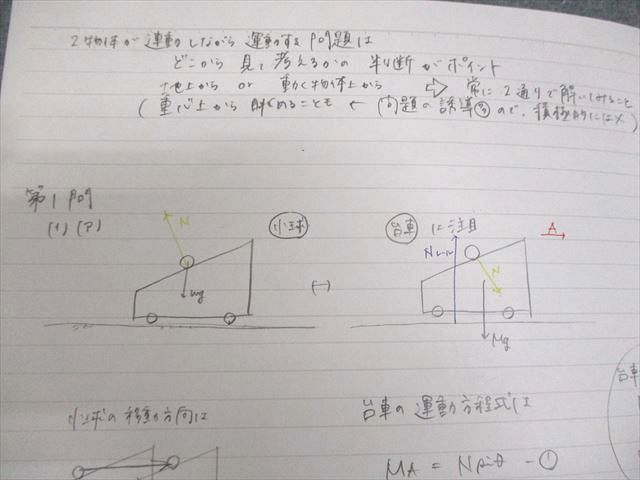 2物体が運動しながら運動する問題は
どこから見て考えるかの判断がポイント
地上から or 動く物体上から ⇨ 常に2通りで解いてみること
(重心上から解くことも ← 問題の誘導 ので、積極的には×)
第1問
(1) (ア)
小球
台車 に注目
A
N
mg
(-)
N
N
Mg
小球の移動方向は
台車の運動方程式は
MA = N sinθ - ①
台車